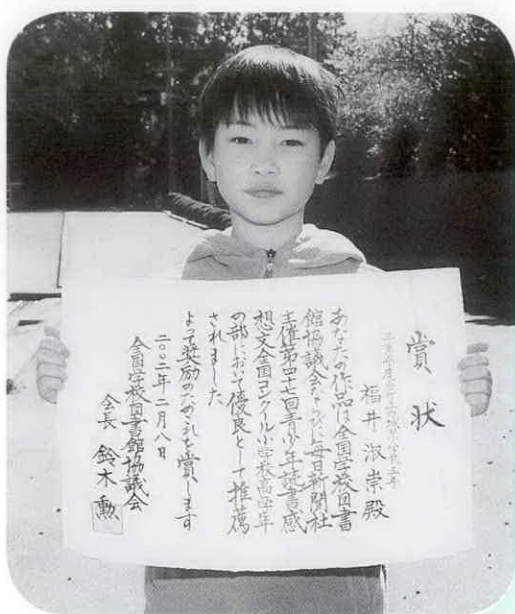 賞状
福井淑崇殿
あなたの作品は全国学校図書
館協議会ならびに毎日新聞社
主催第四十七回青少年読書感
想文全国コンクール小学校高学年
の部において優良として推薦
されました
よって奨励のためこれを賞します
二〇〇二年二月八日
全国学校図書館協議会
会長 鈴木勲